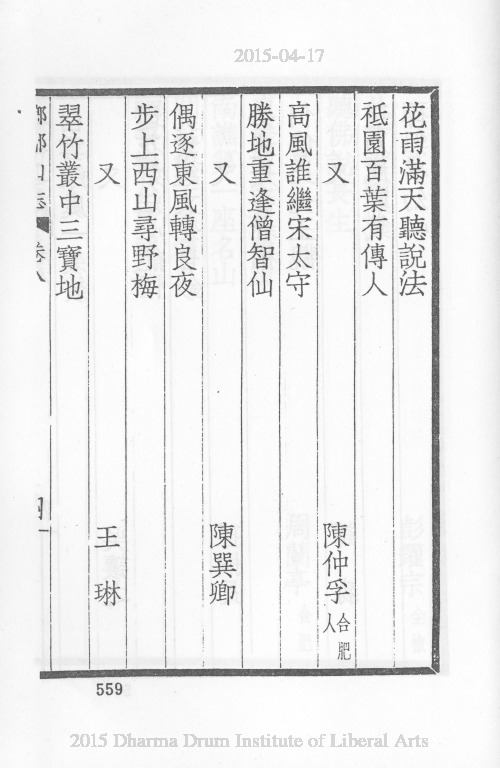 2015-04-17
花雨滿天聽說法
祇園百葉有傳人
又　陳仲孚合肥人
高風誰繼宋太守
勝地重逢僧智仙
又　陳巽卿
偶逐東風轉良夜
步上西山尋野梅
又　王琳
翠竹叢中三寶地
559
2015 Dharma Drum Institute of Liberal Arts